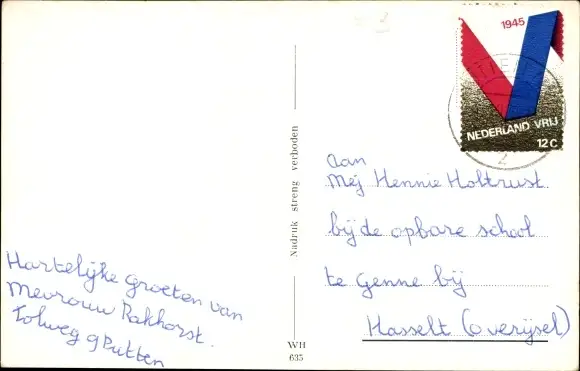 1945
NEDERLAND VRIJ
12 C
2
Nadruk streng verboden
Aan
Mej Hennie Holtrust
bij de opbare school
te Genne bij
Hasselt (overijsel)
Hartelijke groeten van
Mevrouw Rakhorst.
Tolweg 9 Putten
WH
635